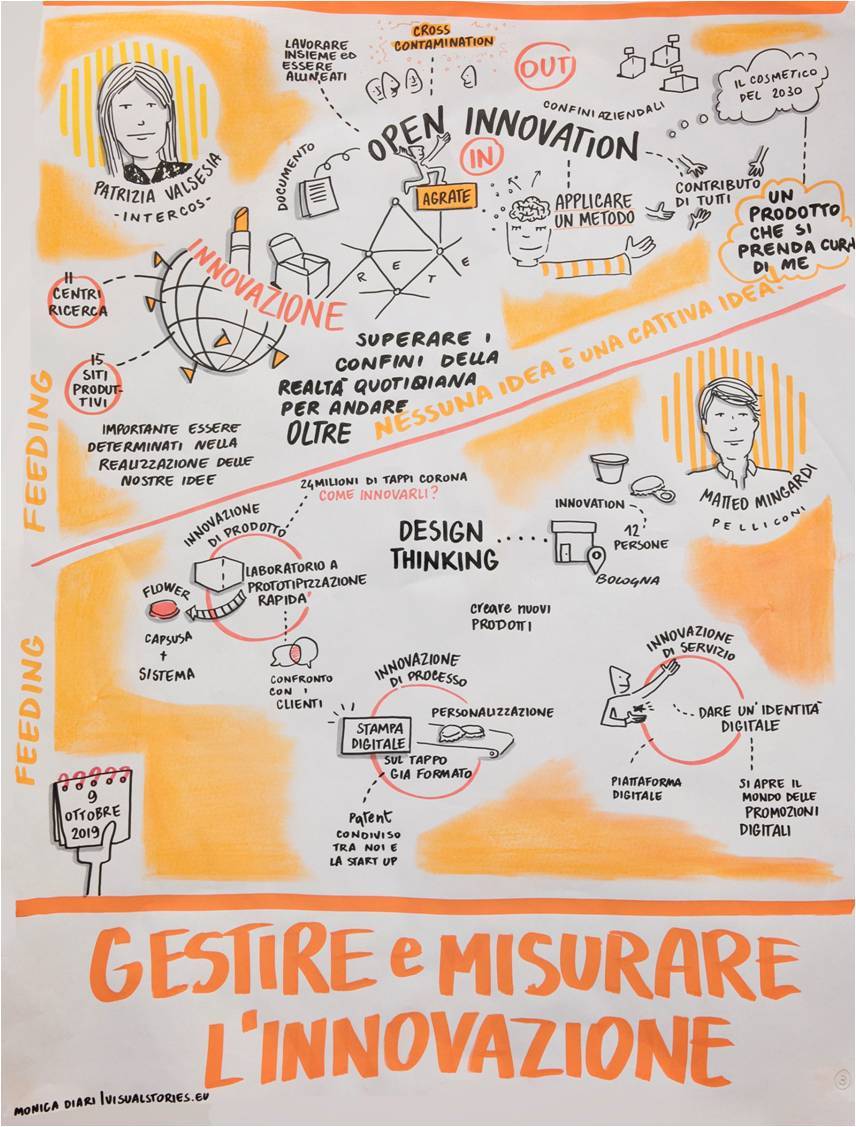 LAVORARE
INSIEME ED
ESSERE
ALLINEATI
CROSS
CONTAMINATION
OUT
IL COSMETICO
DEL 2030
CONFINI AZIENDALI
OPEN INNOVATION
IN
DOCUMENTO
AGRATE
RETE
APPLICARE
UN METODO
CONTRIBUTO
DI TUTTI
UN
PRODOTTO
CHE SI
PRENDA CURA
DI ME
PATRIZIA VALSESIA
-INTERCOS-
INNOVAZIONE
11
CENTRI
RICERCA
15
SITI
PRODUT-
TIVI
SUPERARE I
CONFINI DELLA
REALTÀ QUOTIDIANA
PER ANDARE
OLTRE
NESSUNA IDEA È UNA CATTIVA IDEA!
IMPORTANTE ESSERE
DETERMINATI NELLA
REALIZZAZIONE DELLE
NOSTRE IDEE
FEEDING
MATTEO MINGARDI
PELLICONI
24 MILIONI DI TAPPI CORONA
COME INNOVARLI?
INNOVAZIONE
DI PRODOTTO
LABORATORIO A
PROTOTIPIZZAZIONE
RAPIDA
FLOWER
CAPSUSA
+
SISTEMA
CONFRONTO
CON I
CLIENTI
DESIGN
THINKING
INNOVATION
12
PERSONE
BOLOGNA
creare nuovi
PRODOTTI
INNOVAZIONE
DI PROCESSO
PERSONALIZZAZIONE
STAMPA
DIGITALE
SUL TAPPO
GIA FORMATO
Patent
CONDIVISO
TRA NOI E
LA START UP
INNOVAZIONE
DI SERVIZIO
DARE UN'IDENTITÀ
DIGITALE
PIATTAFORMA
DIGITALE
SI APRE IL
MONDO DELLE
PROMOZIONI
DIGITALI
FEEDING
9
OTTOBRE
2019
GESTIRE e MISURARE
L'INNOVAZIONE
MONICA DIARI | VISUALSTORIES.EU
3